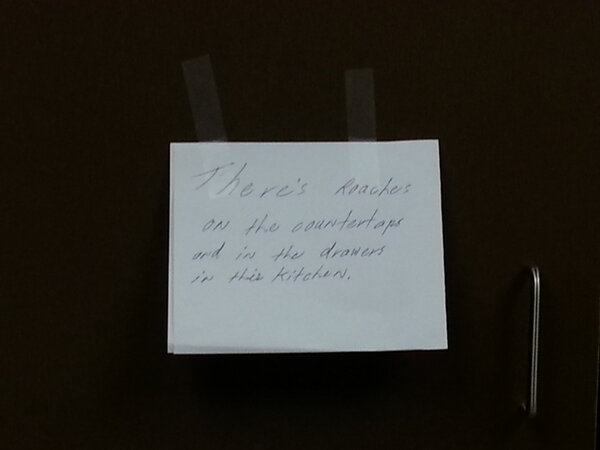 There's Roaches
on the countertops
and in the drawers
in this kitchen.